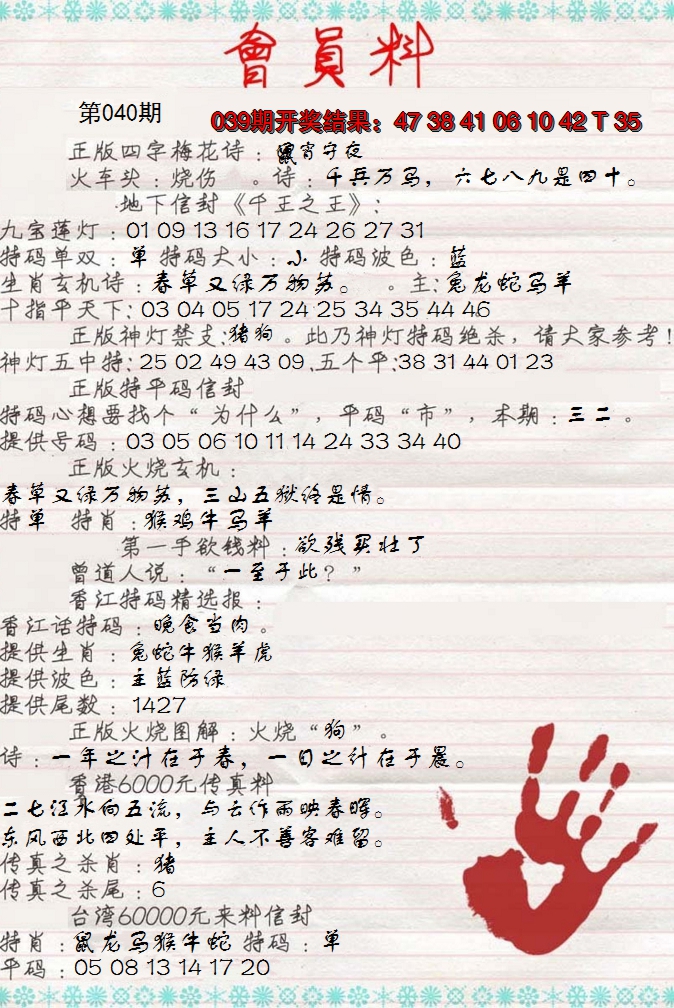 會員料
第040期
039期开奖结果：47 38 41 06 10 42 T 35
正版四字梅花诗：鼠宵守夜
火车头：烧伤 。诗：千兵万马，六七八九是四十。
地下信封《千王之王》：
九宝莲灯：01 09 13 16 17 24 26 27 31
特码单双：单 特码大小：小 特码波色：蓝
生肖玄机诗：春草又绿万物苏。 。主：兔龙蛇马羊
十指平天下：03 04 05 17 24 25 34 35 44 46
正版神灯禁支：猪狗 。此乃神灯特码绝杀，请大家参考！
神灯五中特：25 02 49 43 09 .五个平：38 31 44 01 23
正版特平码信封
特码心想要找个“为什么”，平码“市”，本期：三二 。
提供号码：03 05 06 10 11 14 24 33 34 40
正版火烧玄机：
春草又绿万物苏，三山五狱终是情。
特单 特肖：猴鸡牛马羊
第一手欲钱料：欲残买壮了
曾道人说：“一至于此？”
香江特码精选报：
香江话特码：晚食当肉 。
提供生肖：兔蛇牛猴羊虎
提供波色：主蓝防绿
提供尾数：1427
正版火烧图解：火烧“狗”。
诗：一年之汁在于春，一日之计在于晨。
香港6000元传真料
二七江水向五流，与云作雨映春晖。
东风西北四处平，主人不善客难留。
传真之杀肖：猪
传真之杀尾：6
台湾60000元来料信封
特肖：鼠龙马猴牛蛇 特码：单
平码：05 08 13 14 17 20